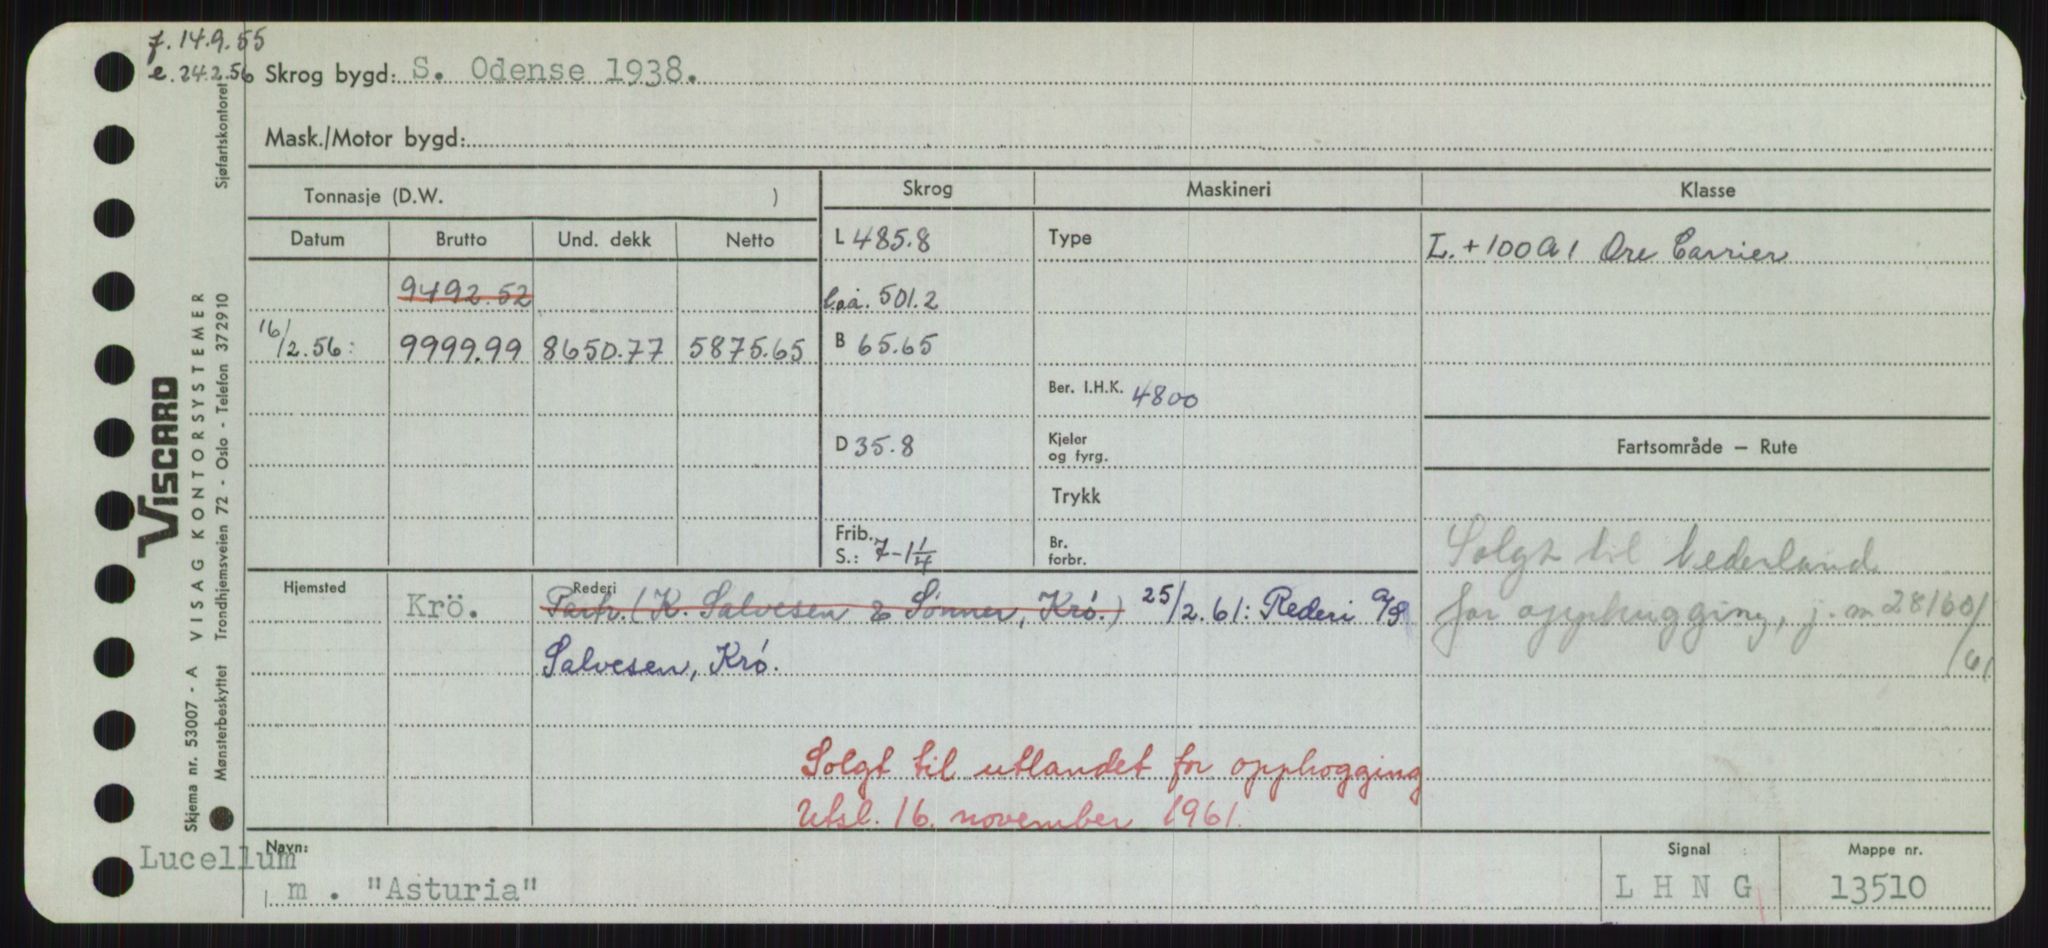 f. 14.9.55
e. 24.2.56 Skrog bygd: S. Odense 1938.
Mask./Motor bygd:
Tonnasje (D.W. ) Skrog Maskineri Klasse
Datum Brutto Und. dekk Netto L 485.8 Type L. + 100 A 1 Ore Carrier
9492.52 l.o.a. 501.2
16/2.56: 9999.99 8650.77 5875.65 B 65.65
Ber. I.H.K. 4800
D 35.8 Kjeler og fyrg. Fartsområde – Rute
Trykk
Frib. S.: 7-1 1/4 Br. forbr. Solgt til Nederland
Hjemsted Krö. Rederi Partr. (K. Salvesen & Sønner, Krö.) 25/2.61: Rederi A/S for opphugging, j. nr. 28160/
Salvesen, Krö. /61
Solgt til utlandet for opphogging
Utsl. 16. november 1961.
Navn: Lucellum
m. "Asturia"
Signal L H N G
Mappe nr. 13510
VISCARD
Skjema nr. 53007 - A VISAG KONTORSYSTEMER
Mønsterbeskyttet Trondhjemsveien 72 - Oslo - Telefon 372910 Sjøfartskontoret